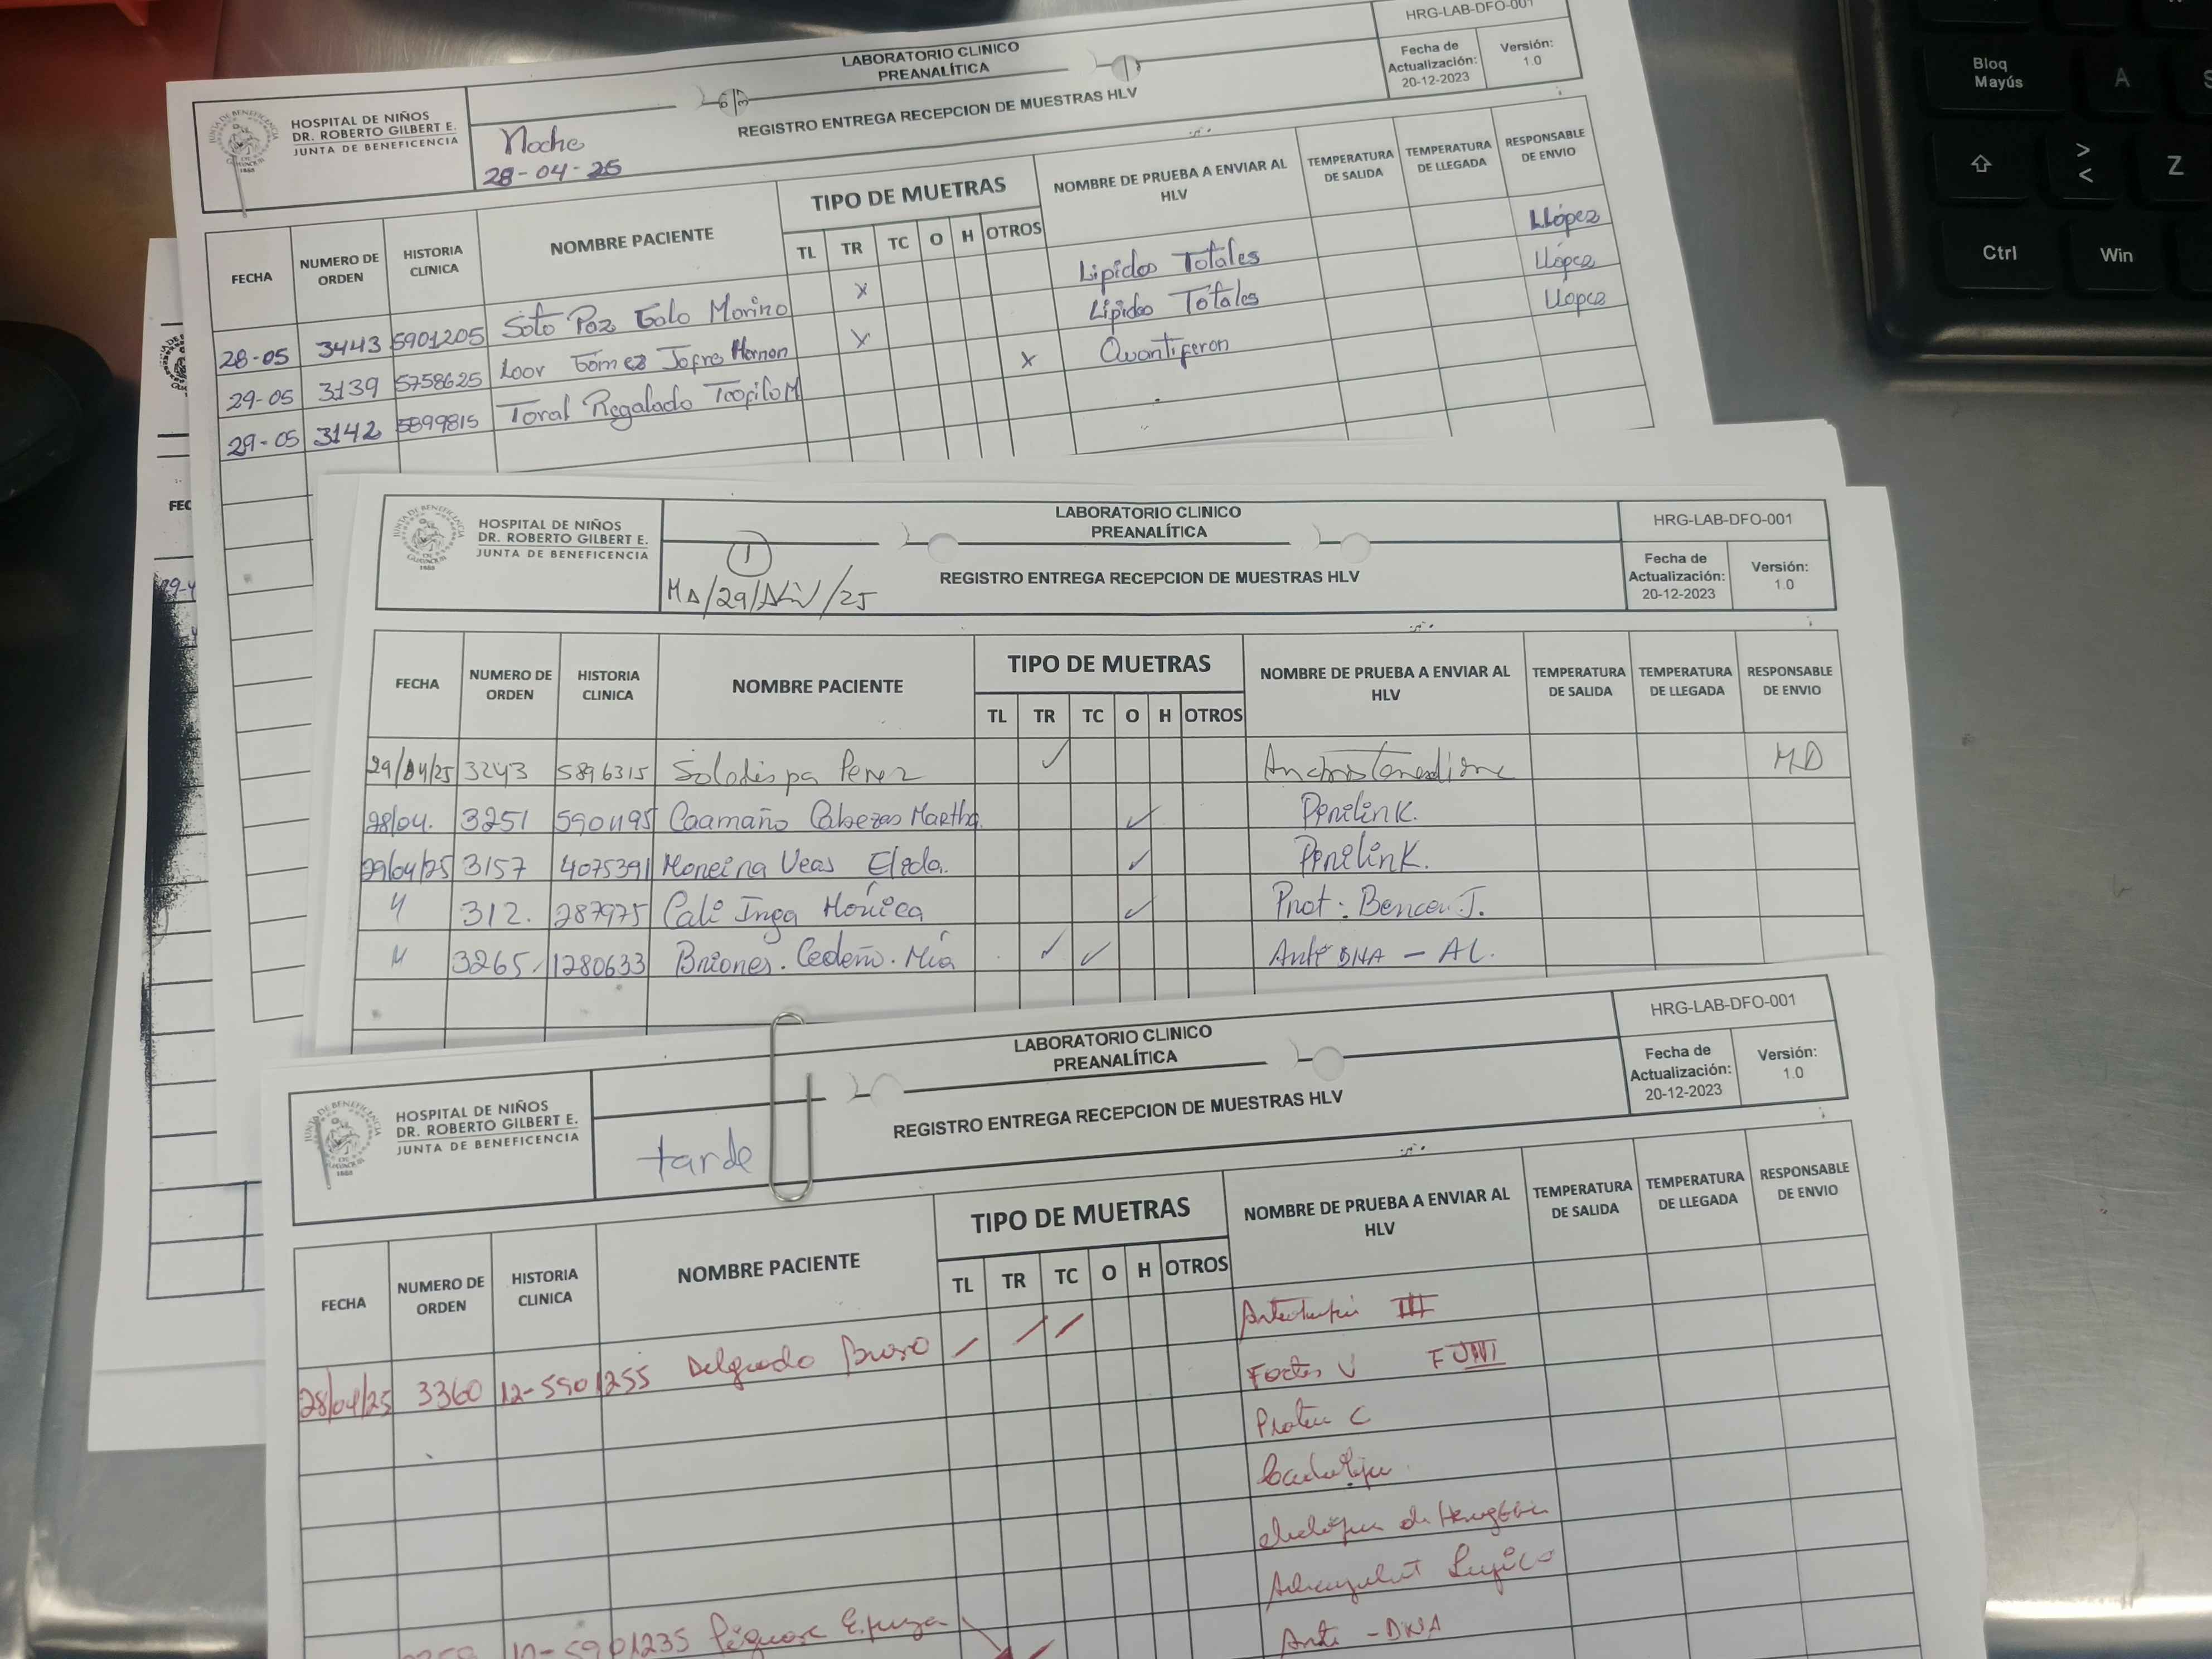 HRG-LAB-DFO-001
LABORATORIO CLINICO
PREANALÍTICA
REGISTRO ENTREGA RECEPCION DE MUESTRAS HLV
Fecha de Actualización: 20-12-2023
Versión: 1.0
HOSPITAL DE NIÑOS
DR. ROBERTO GILBERT E.
JUNTA DE BENEFICENCIA
Noche
28-04-25
FECHA NUMERO DE ORDEN HISTORIA CLINICA NOMBRE PACIENTE TIPO DE MUETRAS NOMBRE DE PRUEBA A ENVIAR AL HLV TEMPERATURA DE SALIDA TEMPERATURA DE LLEGADA RESPONSABLE DE ENVIO
TL TR TC O H OTROS
28-05 3443 5901205 Soto Paz Galo Marino x Lipidos Totales LLópez
29-05 3139 5758625 Loor Gómez x Lipidos Totales LLópez
29-05 3142 5899815 Toral Regalado Teofilo M x Quantiferon LLopez
FEC
HOSPITAL DE NIÑOS
DR. ROBERTO GILBERT E.
JUNTA DE BENEFICENCIA
1
LABORATORIO CLINICO
PREANALÍTICA
REGISTRO ENTREGA RECEPCION DE MUESTRAS HLV
HRG-LAB-DFO-001
Fecha de Actualización: 20-12-2023
Versión: 1.0
FECHA NUMERO DE ORDEN HISTORIA CLINICA NOMBRE PACIENTE TIPO DE MUETRAS NOMBRE DE PRUEBA A ENVIAR AL HLV TEMPERATURA DE SALIDA TEMPERATURA DE LLEGADA RESPONSABLE DE ENVIO
TL TR TC O H OTROS
29/04/25 3243 5896315 Perez ✓ MD
28/04. 3251 Caamaño Cabezas Martha ✓
29/04/25 3157 4075391 Veas ✓
312. 287975 Cali Inga Mónica ✓ Prot:
3265. 1280633 Briones. Cedeño. Mía ✓ ✓ Anti DNA - AL.
HOSPITAL DE NIÑOS
DR. ROBERTO GILBERT E.
JUNTA DE BENEFICENCIA
tarde
LABORATORIO CLINICO
PREANALÍTICA
REGISTRO ENTREGA RECEPCION DE MUESTRAS HLV
HRG-LAB-DFO-001
Fecha de Actualización: 20-12-2023
Versión: 1.0
FECHA NUMERO DE ORDEN HISTORIA CLINICA NOMBRE PACIENTE TIPO DE MUETRAS NOMBRE DE PRUEBA A ENVIAR AL HLV TEMPERATURA DE SALIDA TEMPERATURA DE LLEGADA RESPONSABLE DE ENVIO
TL TR TC O H OTROS
28/04/25 3360 12-5901255 Delgado III
Factor V
C
12-5901235
Anti - DNA
Bloq Mayús
A
>
<
Z
Ctrl
Win